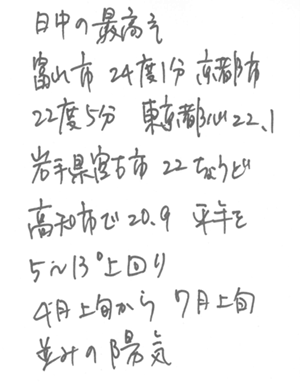 日中の最高え
富山市 24度1分 京都市
22度5分 東京都心22.1
岩手県宮古市 22ちょうど
高知市で20.9 平年を
5〜13°上回り
4月上旬から 7月上旬
並みの陽気